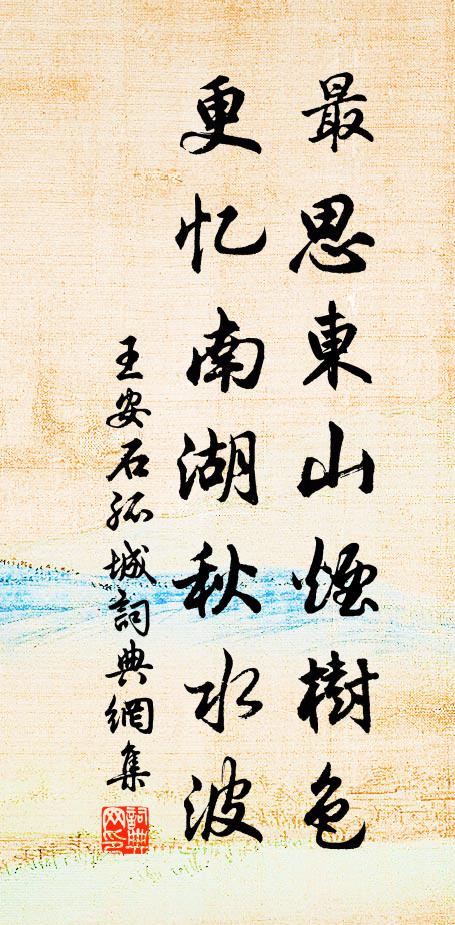 最思東山煙樹色
更忆南湖秋水波
王安石孤城詞典網集
詞典
网印